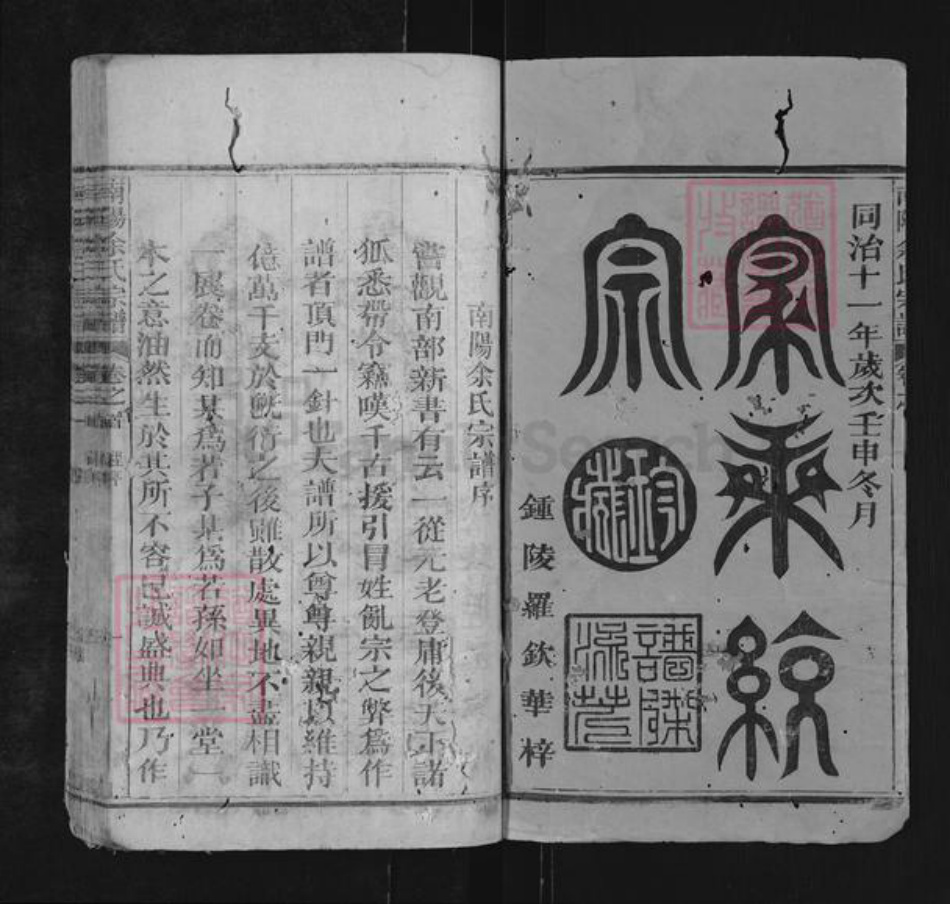 同治十一年歲次壬申冬月
家乘統
宗
珍藏
譜牒
流芳
鍾陵羅欽華梓
南陽余氏宗譜序
嘗觀南部新書有云一從元老登庸後天下諸
狐悉帶令竊嘆千古援引冒姓亂宗之弊爲作
譜者頂門一針也夫譜所以尊尊親親以維持
億萬千支於旣衍之後雖散處異地不盡相識
一展卷而知某爲若子某爲若孫如坐一堂一
本之意油然生於其所不容已誠盛典也乃作
南陽余氏宗譜 卷之首